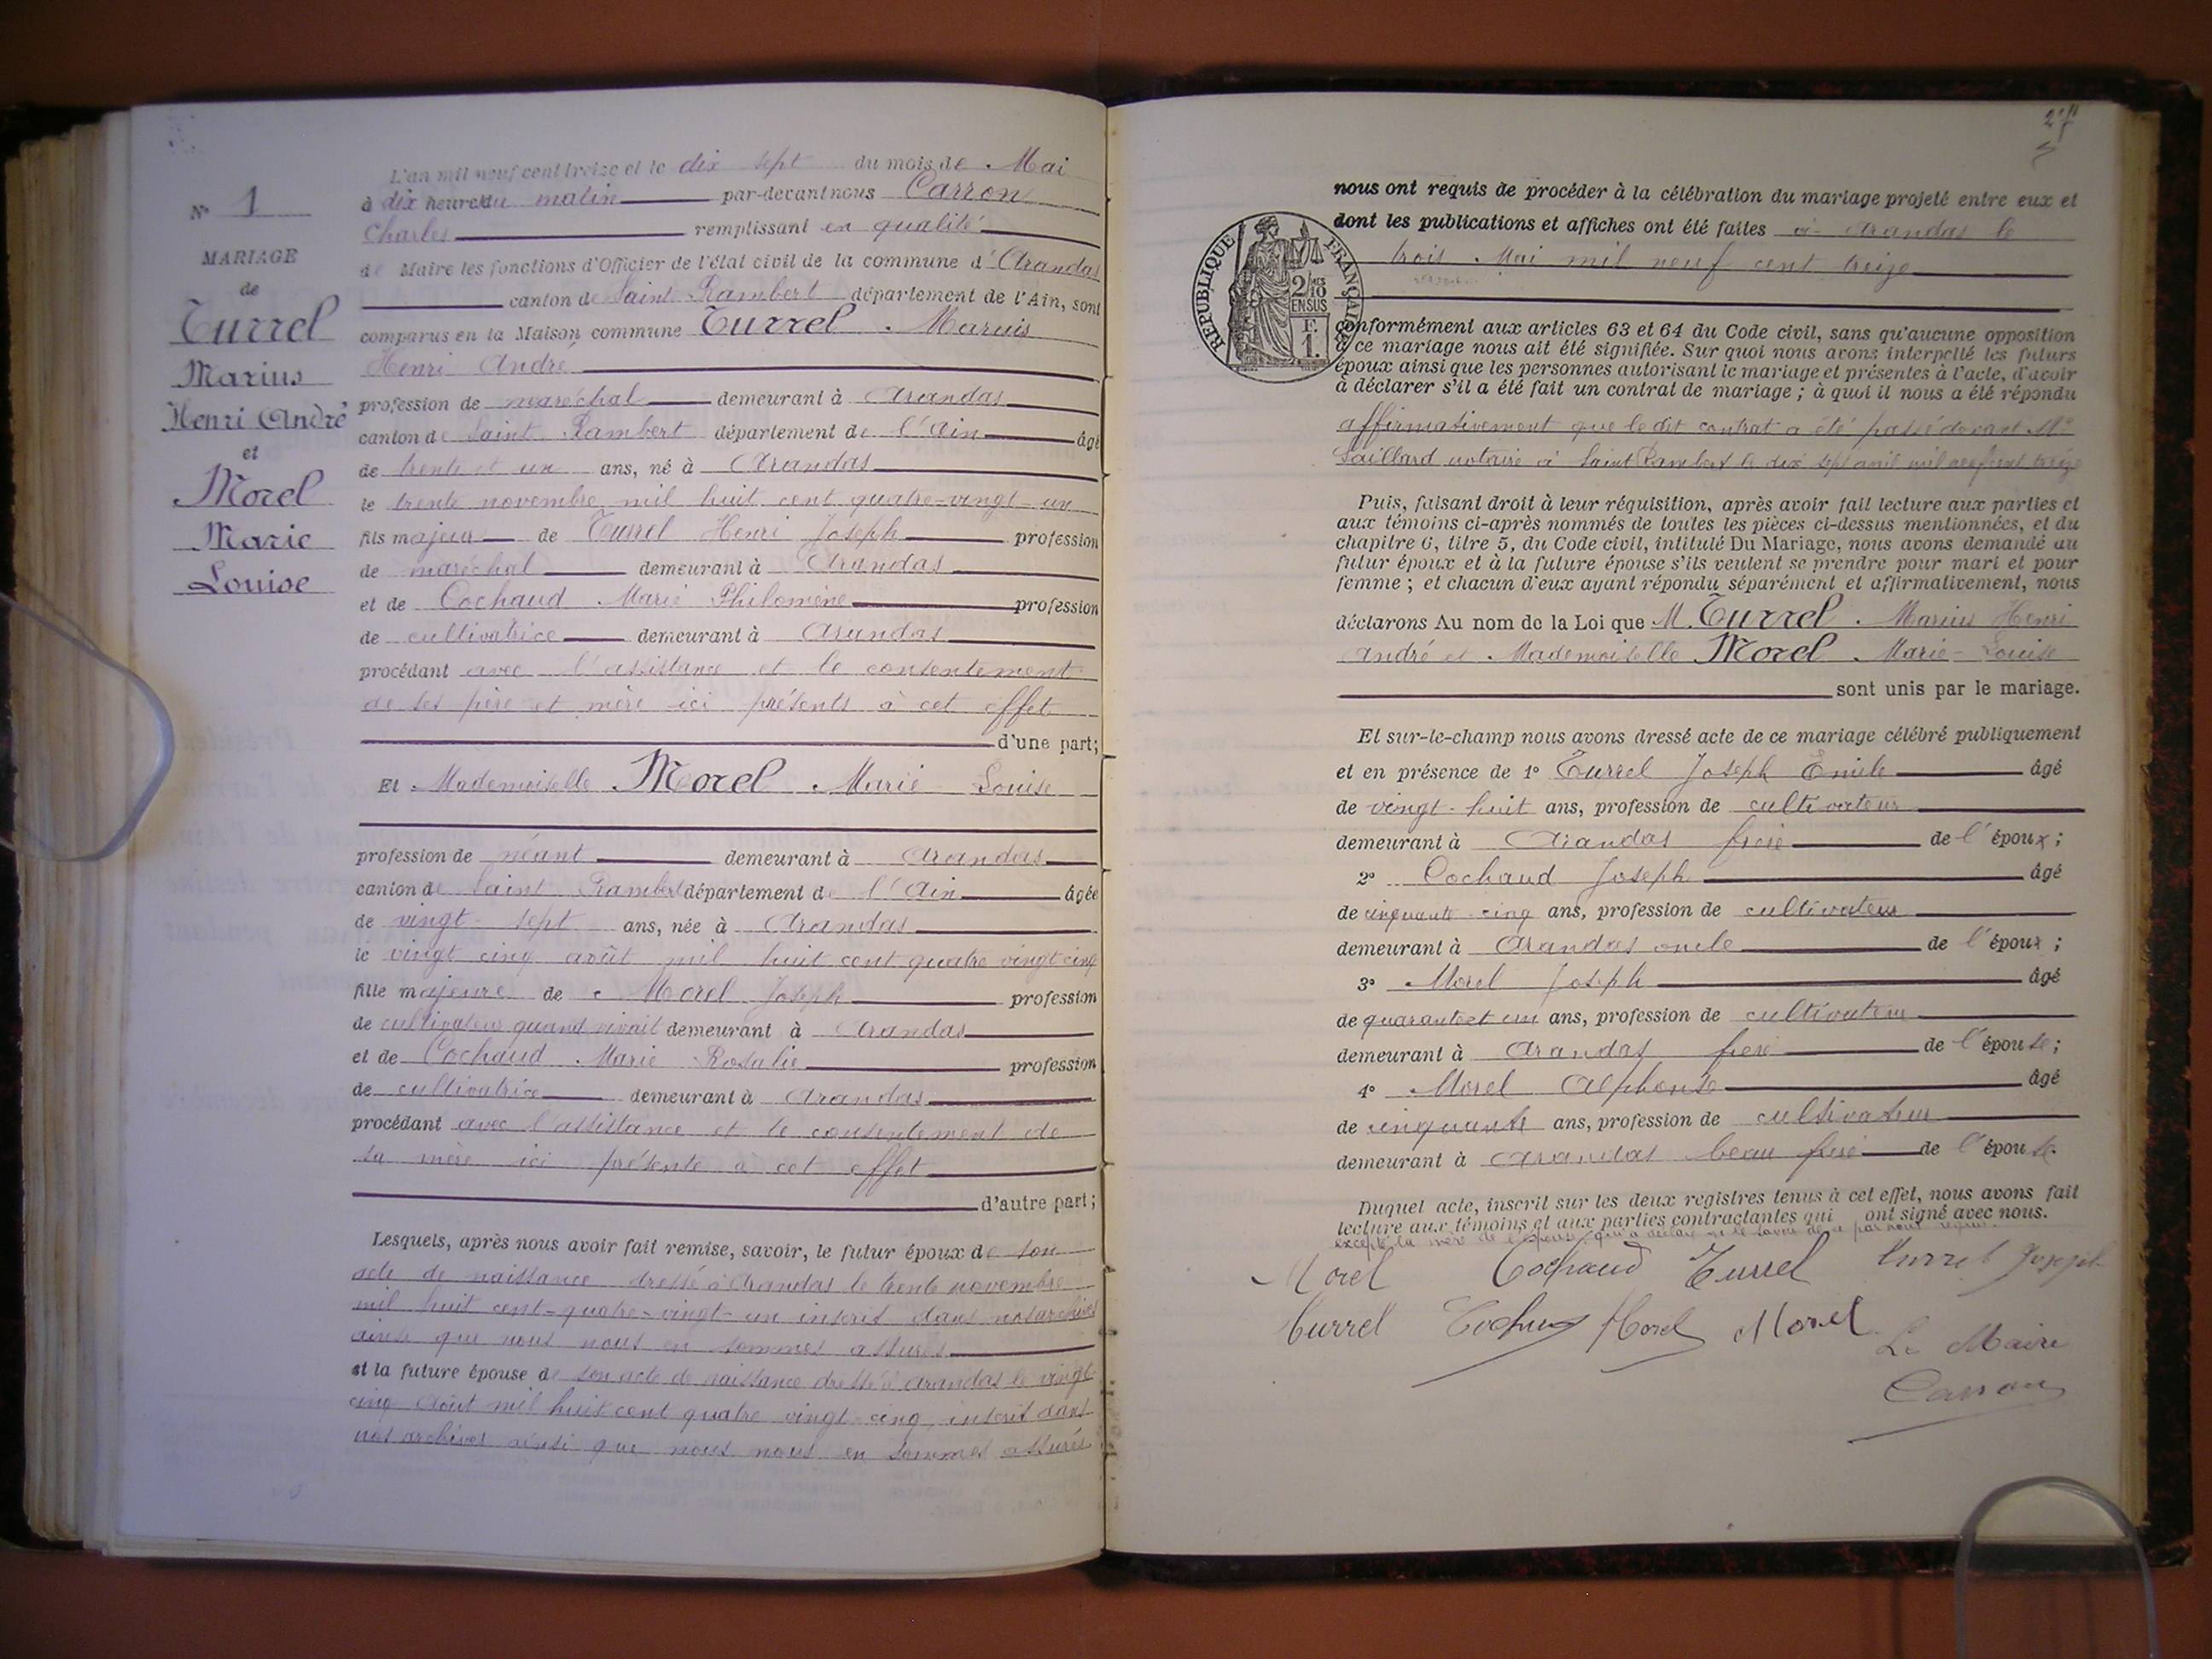 N° 1
MARIAGE
de
Turrel
Marius
Henri André
et
Morel
Marie
Louise
L'an mil neuf cent treize et le dix sept du mois de Mai
à dix heures du matin par-devant nous Carron
Charles remplissant en qualité
de Maire les fonctions d'Officier de l'état civil de la commune d'Arandas
canton de Saint-Rambert département de l'Ain, sont
comparus en la Maison commune Turrel Maruis
Henri André
profession de maréchal demeurant à Arandas
canton de Saint-Rambert département de l'Ain âgé
de trente et un ans, né à Arandas
le trente novembre mil huit cent quatre-vingt-un
fils majeur de Turrel Henri Joseph profession
de maréchal demeurant à Arandas
et de Cochaud Marie Philomène profession
de cultivatrice demeurant à Arandas
procédant avec l'assistance et le consentement
de ses père et mère ici présents à cet effet
d'une part;
Et Mademoiselle Morel Marie Louise
profession de néant demeurant à Arandas
canton de Saint Rambert département de l'Ain âgée
de vingt-sept ans, née à Arandas
le vingt cinq août mil huit cent quatre vingt cinq
fille majeure de Morel Joseph profession
de cultivateur quand vivait demeurant à Arandas
et de Cochaud Marie Rosalie profession
de cultivatrice demeurant à Arandas
procédant avec l'assistance et le consentement de
sa mère ici présente à cet effet
d'autre part;
Lesquels, après nous avoir fait remise, savoir, le futur époux de son
acte de naissance dressé à Arandas le trente novembre
mil huit cent-quatre-vingt-un inscrit dans nos archives
ainsi que nous nous en sommes assurés
et la future épouse de son acte de naissance dressé à Arandas le vingt
cinq Août mil huit cent quatre vingt cinq, inscrit dans
nos archives ainsi que nous nous en sommes assurés
27
nous ont requis de procéder à la célébration du mariage projeté entre eux et
dont les publications et affiches ont été faites à Arandas le
trois Mai mil neuf cent treize
REPUBLIQUE FRANÇAISE
2/10 EN SUS
F. 1.
conformément aux articles 63 et 64 du Code civil, sans qu'aucune opposition
à ce mariage nous ait été signifiée. Sur quoi nous avons interpellé les futurs
époux ainsi que les personnes autorisant le mariage et présentes à l'acte, d'avoir
à déclarer s'il a été fait un contrat de mariage ; à quoi il nous a été répondu
affirmativement que le dit contrat a été passé devant Me
Saillard notaire à Saint Rambert le dix sept avril mil neuf cent treize
Puis, faisant droit à leur réquisition, après avoir fait lecture aux parties et
aux témoins ci-après nommés de toutes les pièces ci-dessus mentionnées, et du
chapitre 6, titre 5, du Code civil, intitulé Du Mariage, nous avons demandé au
futur époux et à la future épouse s'ils veulent se prendre pour mari et pour
femme ; et chacun d'eux ayant répondu séparément et affirmativement, nous
déclarons Au nom de la Loi que M. Turrel Marius Henri
André et Mademoiselle Morel Marie-Louise
sont unis par le mariage.
Et sur-le-champ nous avons dressé acte de ce mariage célébré publiquement
et en présence de 1° Turrel Joseph Emile âgé
de vingt-huit ans, profession de cultivateur
demeurant à Arandas frère de l'époux ;
2° Cochaud Joseph âgé
de cinquante-cinq ans, profession de cultivateur
demeurant à Arandas oncle de l'époux ;
3° Morel Joseph âgé
de quarante et un ans, profession de cultivateur
demeurant à Arandas frère de l'épouse ;
4° Morel Alphonse âgé
de cinquante ans, profession de cultivateur
demeurant à Arandas beau frère de l'épouse.
Duquel acte, inscrit sur les deux registres tenus à cet effet, nous avons fait
lecture aux témoins et aux parties contractantes qui ont signé avec nous.
excepté la mère de l'époux qui a déclaré ne le savoir de ce par nous requis.
Morel Cochaud Turrel turrel Joseph
turrel Cochaud Morel Morel
Le Maire
Carron